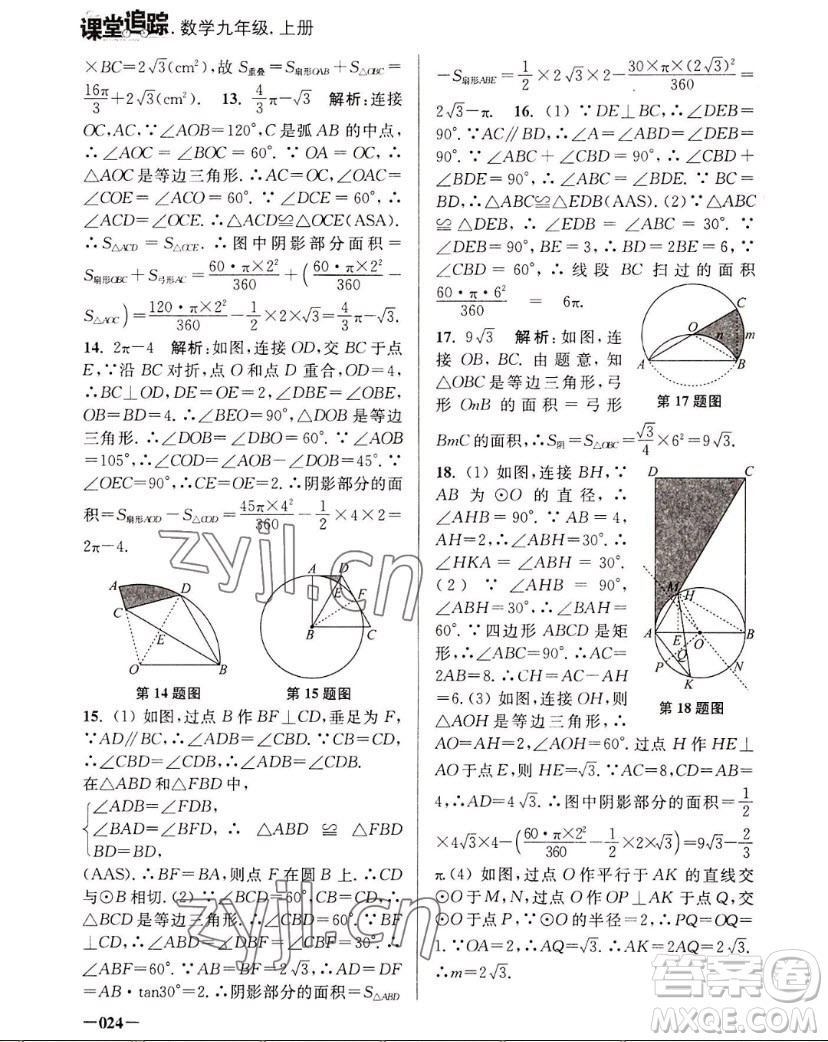 课堂追踪.数学九年级.上册
×BC=2√3(cm²),故 S重叠=S扇形OAB+S△OBC=
16π/3+2√3(cm²). 13. 4/3π-√3 解析:连接
OC,AC,∵∠AOB=120°,C是弧AB的中点,
∴∠AOC=∠BOC=60°.∵OA=OC,∴
△AOC是等边三角形.∴AC=OC,∠OAC=
∠COE=∠ACO=60°.∵∠DCE=60°,∴
∠ACD=∠OCE.∴△ACD≌△OCE(ASA).
∴S△ACD=S△OCE.∴图中阴影部分面积=
S扇形OBC+S弓形AC=60·π×2²/360+(60·π×2²/360-
S△AOC)=120·π×2²/360-1/2×2×√3=4/3π-√3.
14. 2π-4 解析:如图,连接OD,交BC于点
E,∵沿BC对折,点O和点D重合,OD=4,
∴BC⊥OD,DE=OE=2,∠DBE=∠OBE,
OB=BD=4.∴∠BEO=90°,△DOB是等边
三角形.∴∠DOB=∠DBO=60°.∵∠AOB
=105°,∴∠COD=∠AOB-∠DOB=45°.∵
∠OEC=90°,∴CE=OE=2.∴阴影部分的面
积=S扇形AOD-S△COD=45π×4²/360-1/2×4×2=
2π-4.
A D C E O B
A D E F B C
第14题图 第15题图
15. (1)如图,过点B作BF⊥CD,垂足为F,
∵AD∥BC,∴∠ADB=∠CBD.∵CB=CD,
∴∠CBD=∠CDB.∴∠ADB=∠CDB.
在△ABD和△FBD中,
∠ADB=∠FDB,
∠BAD=∠BFD,∴△ABD≌△FBD
BD=BD,
(AAS).∴BF=BA,则点F在圆B上.∴CD
与⊙B相切.(2)∵∠BCD=60°,CB=CD,∴
△BCD是等边三角形.∴∠CBD=60°.∵
BF⊥CD,∴∠ABD=∠DBF=∠CBF=30°.∴
∠ABF=60°.∵AB=BF=2√3,∴AD=DF
=AB·tan30°=2.∴阴影部分的面积=S△ABD
—024—
-S扇形ABE=1/2×2√3×2-30×π×(2√3)²/360=
2√3-π. 16. (1)∵DE⊥BC,∴∠DEB=
90°.∵AC∥BD,∴∠A=∠ABD=∠DEB=
90°.∵∠ABC+∠CBD=90°,∠CBD+
∠BDE=90°,∴∠ABC=∠BDE.∵BC=
BD,∴△ABC≌△EDB(AAS).(2)∵△ABC
≌△DEB,∴∠BDE=∠ABC=30°.∵
∠DEB=90°,BE=3,∴BD=2BE=6.∵
∠CBD=60°,∴线段BC扫过的面积
60·π·6²/360=6π.
17. 9√3 解析:如图,连
接OB,BC.由题意,知
△OBC是等边三角形,弓
形OnB的面积=弓形
O C n m A B
第17题图
BmC的面积,∴S阴=S△OBC=√3/4×6²=9√3.
18. (1)如图,连接BH,∵
AB为⊙O的直径,∴
∠AHB=90°.∵AB=4,
AH=2,∴∠ABH=30°.∴
∠HKA=∠ABH=30°.
(2)∵∠AHB=90°,
∠ABH=30°,∴∠BAH=
60°.∵四边形ABCD是矩
形,∴∠ABC=90°.∴AC=
2AB=8.∴CH=AC-AH
=6.(3)如图,连接OH,则
△AOH是等边三角形,∴
D C M H A E O B P Q K N
第18题图
AO=AH=2,∠AOH=60°.过点H作HE⊥
AO于点E,则HE=√3.∵AC=8,CD=AB=
4,∴AD=4√3.∴图中阴影部分的面积=1/2
×4√3×4-(60·π×2²/360-1/2×2×√3)=9√3-2/3
π.(4)如图,过点O作平行于AH的直线交
⊙O于M,N,过点O作OP⊥AK于点Q,交
⊙O于点P,∵⊙O的半径=2,∴PQ=OQ=
1.∵OA=2,∴AQ=√3.∴AK=2AQ=2√3.
∴m=2√3.
zyjl.cn
zyjl.cn
答案卷